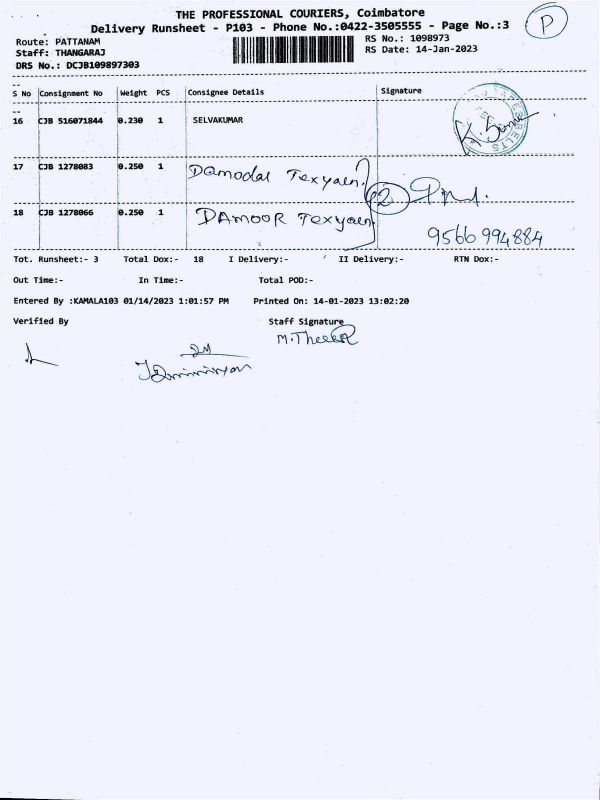 THE PROFESSIONAL COURIERS, Coimbatore
Delivery Runsheet - P103 - Phone No.:0422-3505555 - Page No.:3
P
Route: PATTANAM
RS No.: 1098973
Staff: THANGARAJ
RS Date: 14-Jan-2023
DRS No.: DCJB109897303
S No Consignment No Weight PCS Consignee Details Signature
16 CJB 516071844 0.230 1 SELVAKUMAR
17 CJB 1278083 0.250 1 Damodar Texyaen
2
18 CJB 1278066 0.250 1 DAMOOR Texyaen
9566994884
Tot. Runsheet:- 3 Total Dox:- 18 I Delivery:- II Delivery:- RTN Dox:-
Out Time:- In Time:- Total POD:-
Entered By :KAMALA103 01/14/2023 1:01:57 PM Printed On: 14-01-2023 13:02:20
Verified By Staff Signature